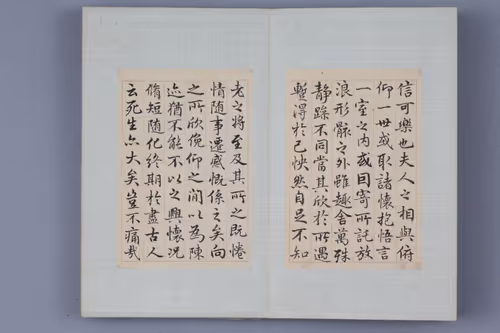 信可樂也夫人之相與俯
仰一世或取諸懷抱悟言
一室之内或因寄所託放
浪形骸之外雖趣舍萬殊
静躁不同當其欣於所遇
暫得於己怏然自足不知
老之將至及其所之既惓
情隨事遷感慨係之矣向
之所欣俛仰之閒以為陳
迹猶不能不以之興懷況
脩短隨化終期於盡古人
云死生亦大矣豈不痛哉